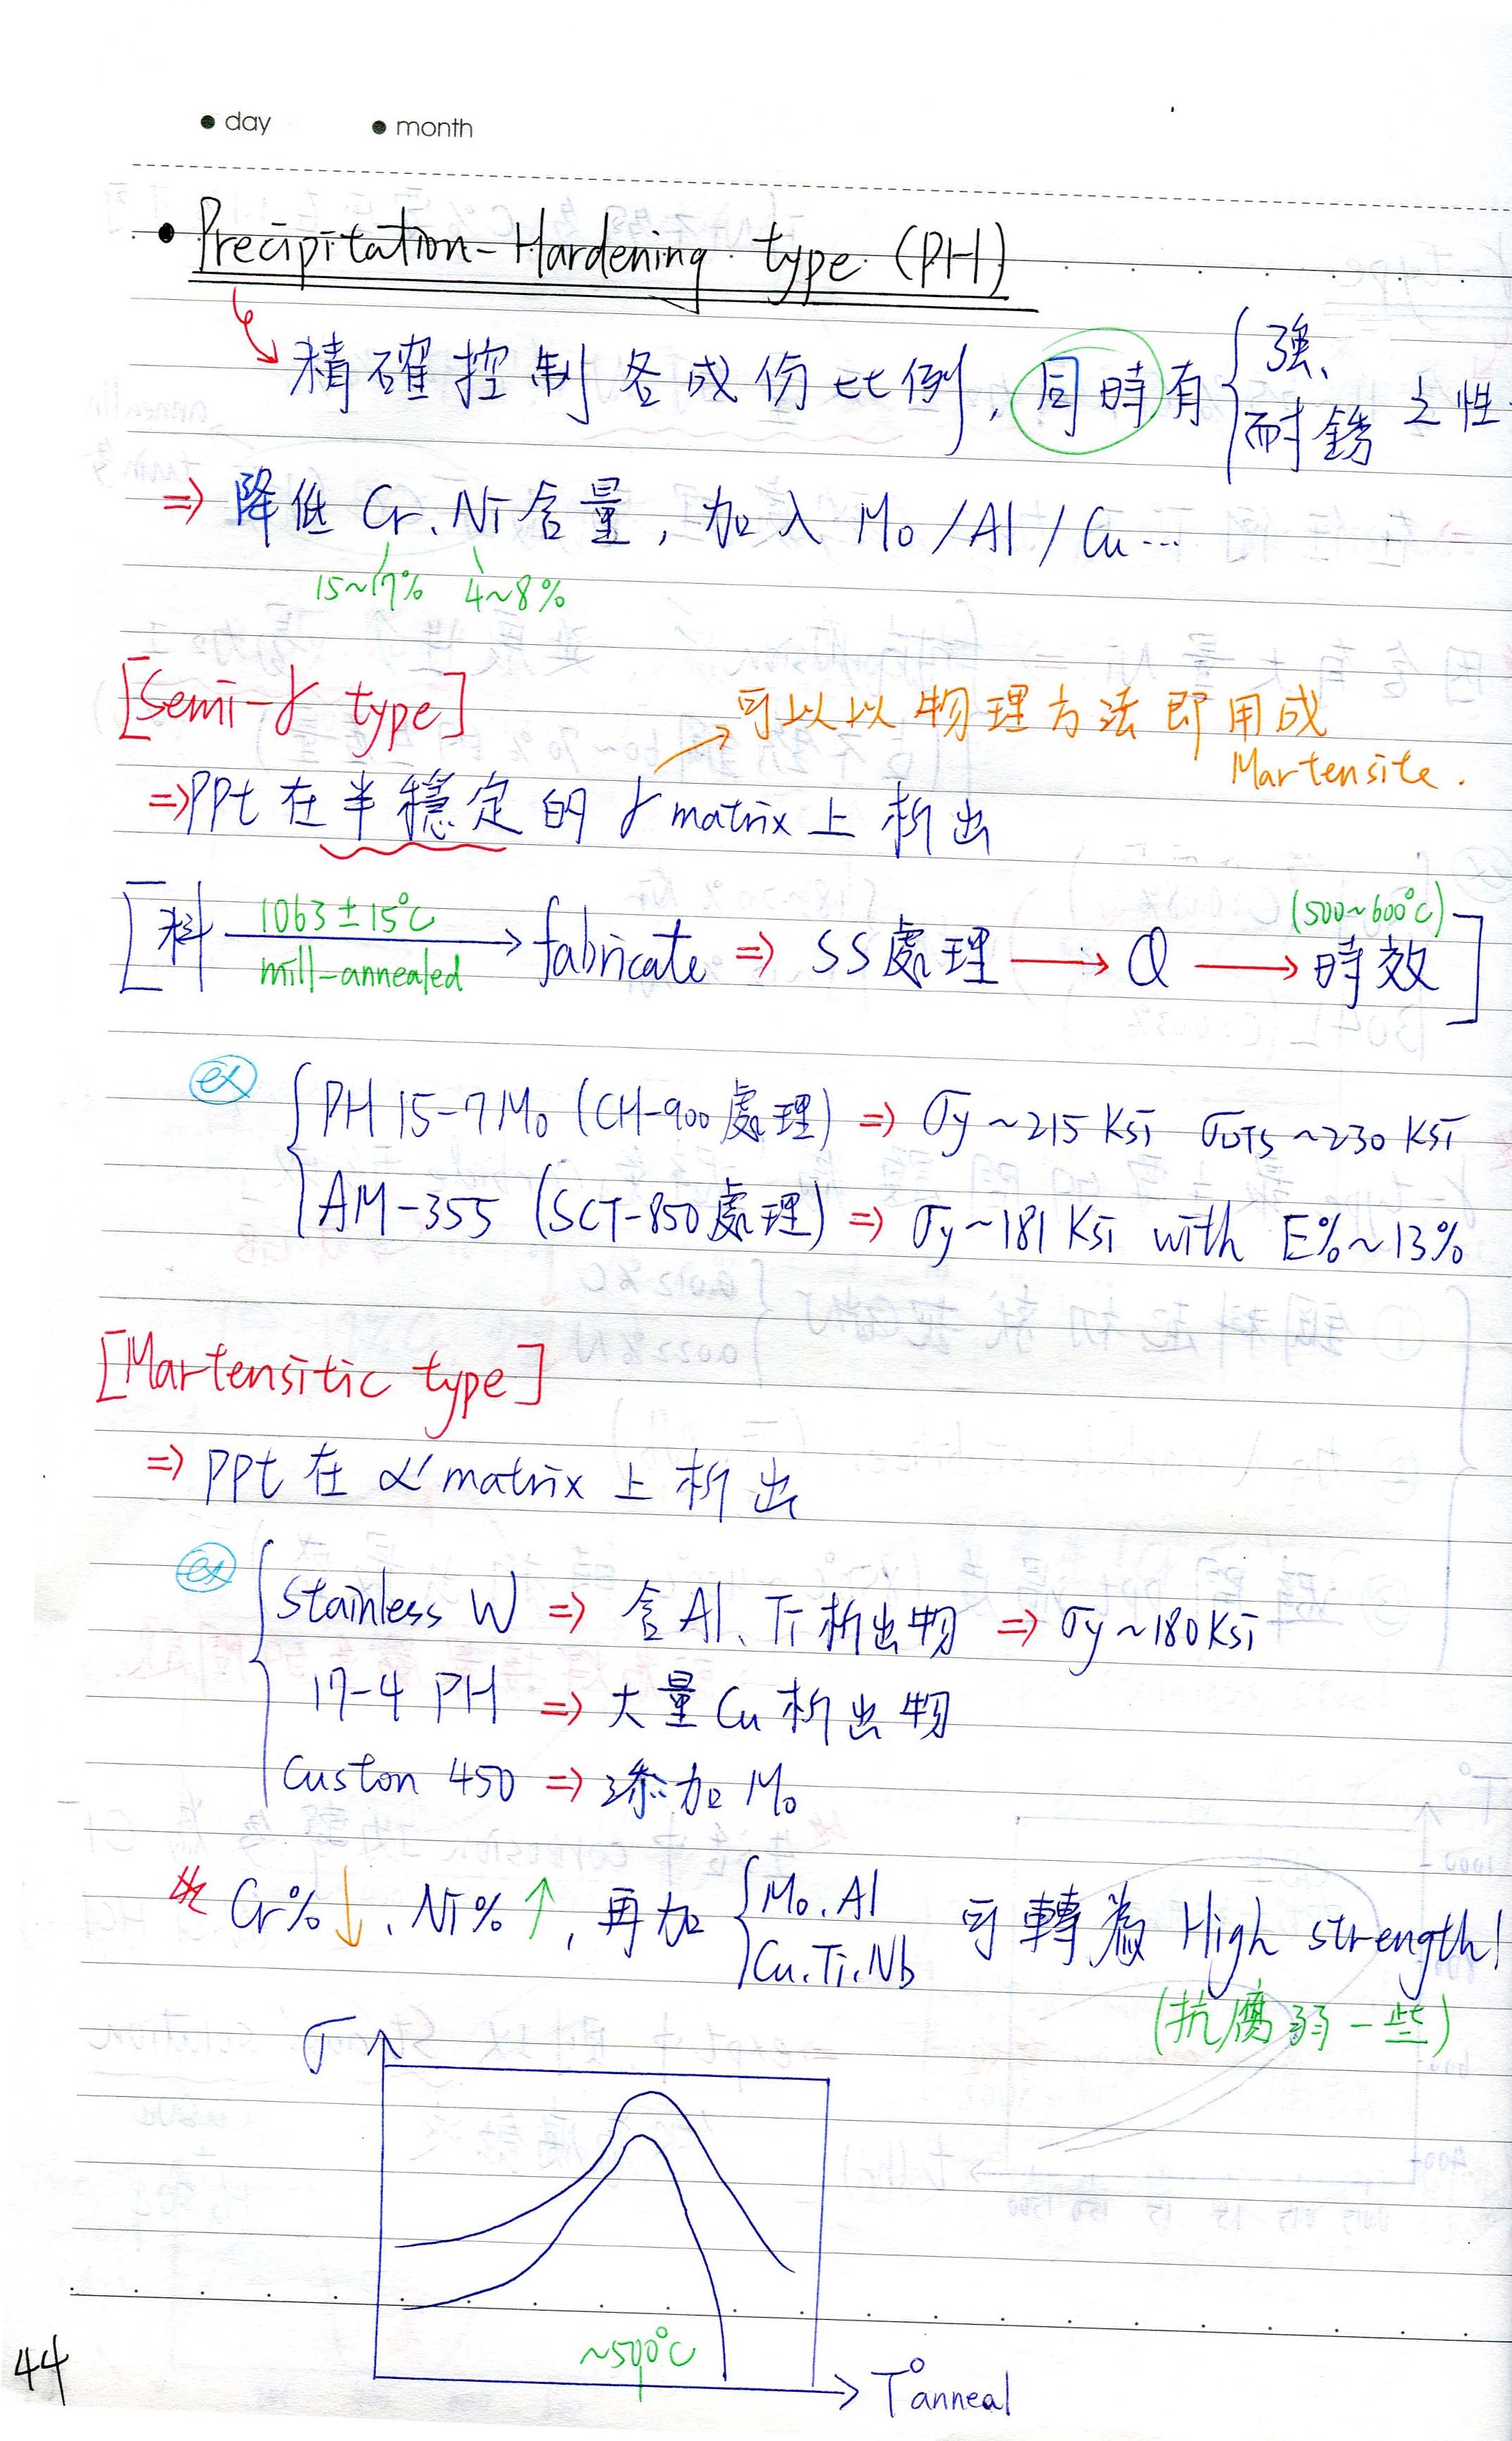 • day • month
• Precipitation-Hardening type (PH)
精確控制各成份比例, 同時有 { 強、 耐銹 之性
⇒ 降低 Cr、Ni 含量, 加入 Mo / Al / Cu…
15~17% 4~8%
[Semi-γ type]
可以以物理方法即用成
Martensite.
⇒ PPt 在半穩定的 γ matrix 上析出
[料 1063 ± 15°C mill-annealed → fabricate ⇒ SS處理 → Q → (500~600°C) 時效]
ex { PH 15-7 Mo (CH-900處理) ⇒ σy ~215 Ksi σUTS ~230 Ksi
AM-355 (SCT-850處理) ⇒ σy ~181 Ksi with E% ~13%
[Martensitic type]
⇒ PPt 在 α' matrix 上析出
ex { Stainless W ⇒ 含 Al、Ti 析出物 ⇒ σy ~180 Ksi
17-4 PH ⇒ 大量 Cu 析出物
Custon 450 ⇒ 添加 Mo
※ Cr% ↓、Ni% ↑, 再加 { Mo. Al Cu. Ti. Nb 可轉為 High strength!
(抗腐弱一些)
σ
~500°C
T°anneal
44